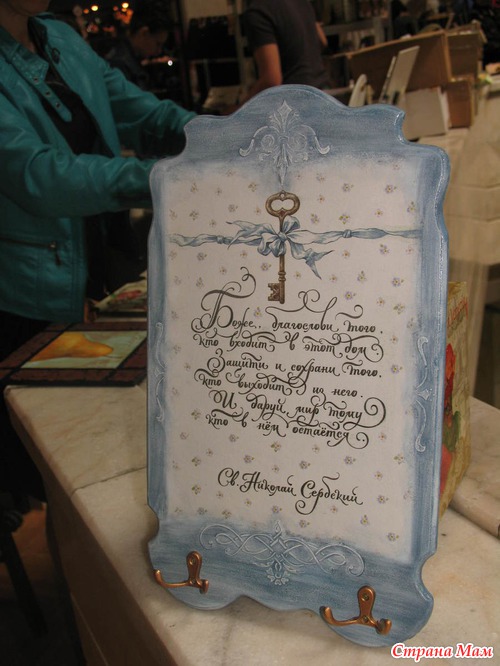 Боже, благослови того,
кто входит в этот дом.
Защити и сохрани того,
кто выходит из него.
И даруй мир тому
кто в нём остаётся
Св. Николай Сербский
Страна Мам